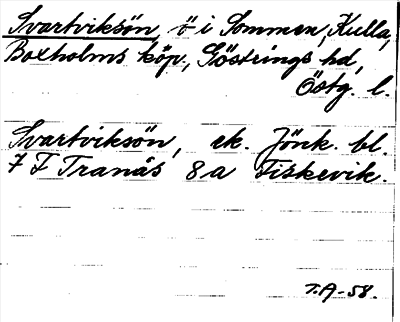 Svartviksön, ö i Sommen, Kulla,
Boxholms köp., Göstrings hd,
Östg. l.
Svartviksön, ek. Jönk. bl.
7 F Tranås 8a Fiskevik.
T.A-58.